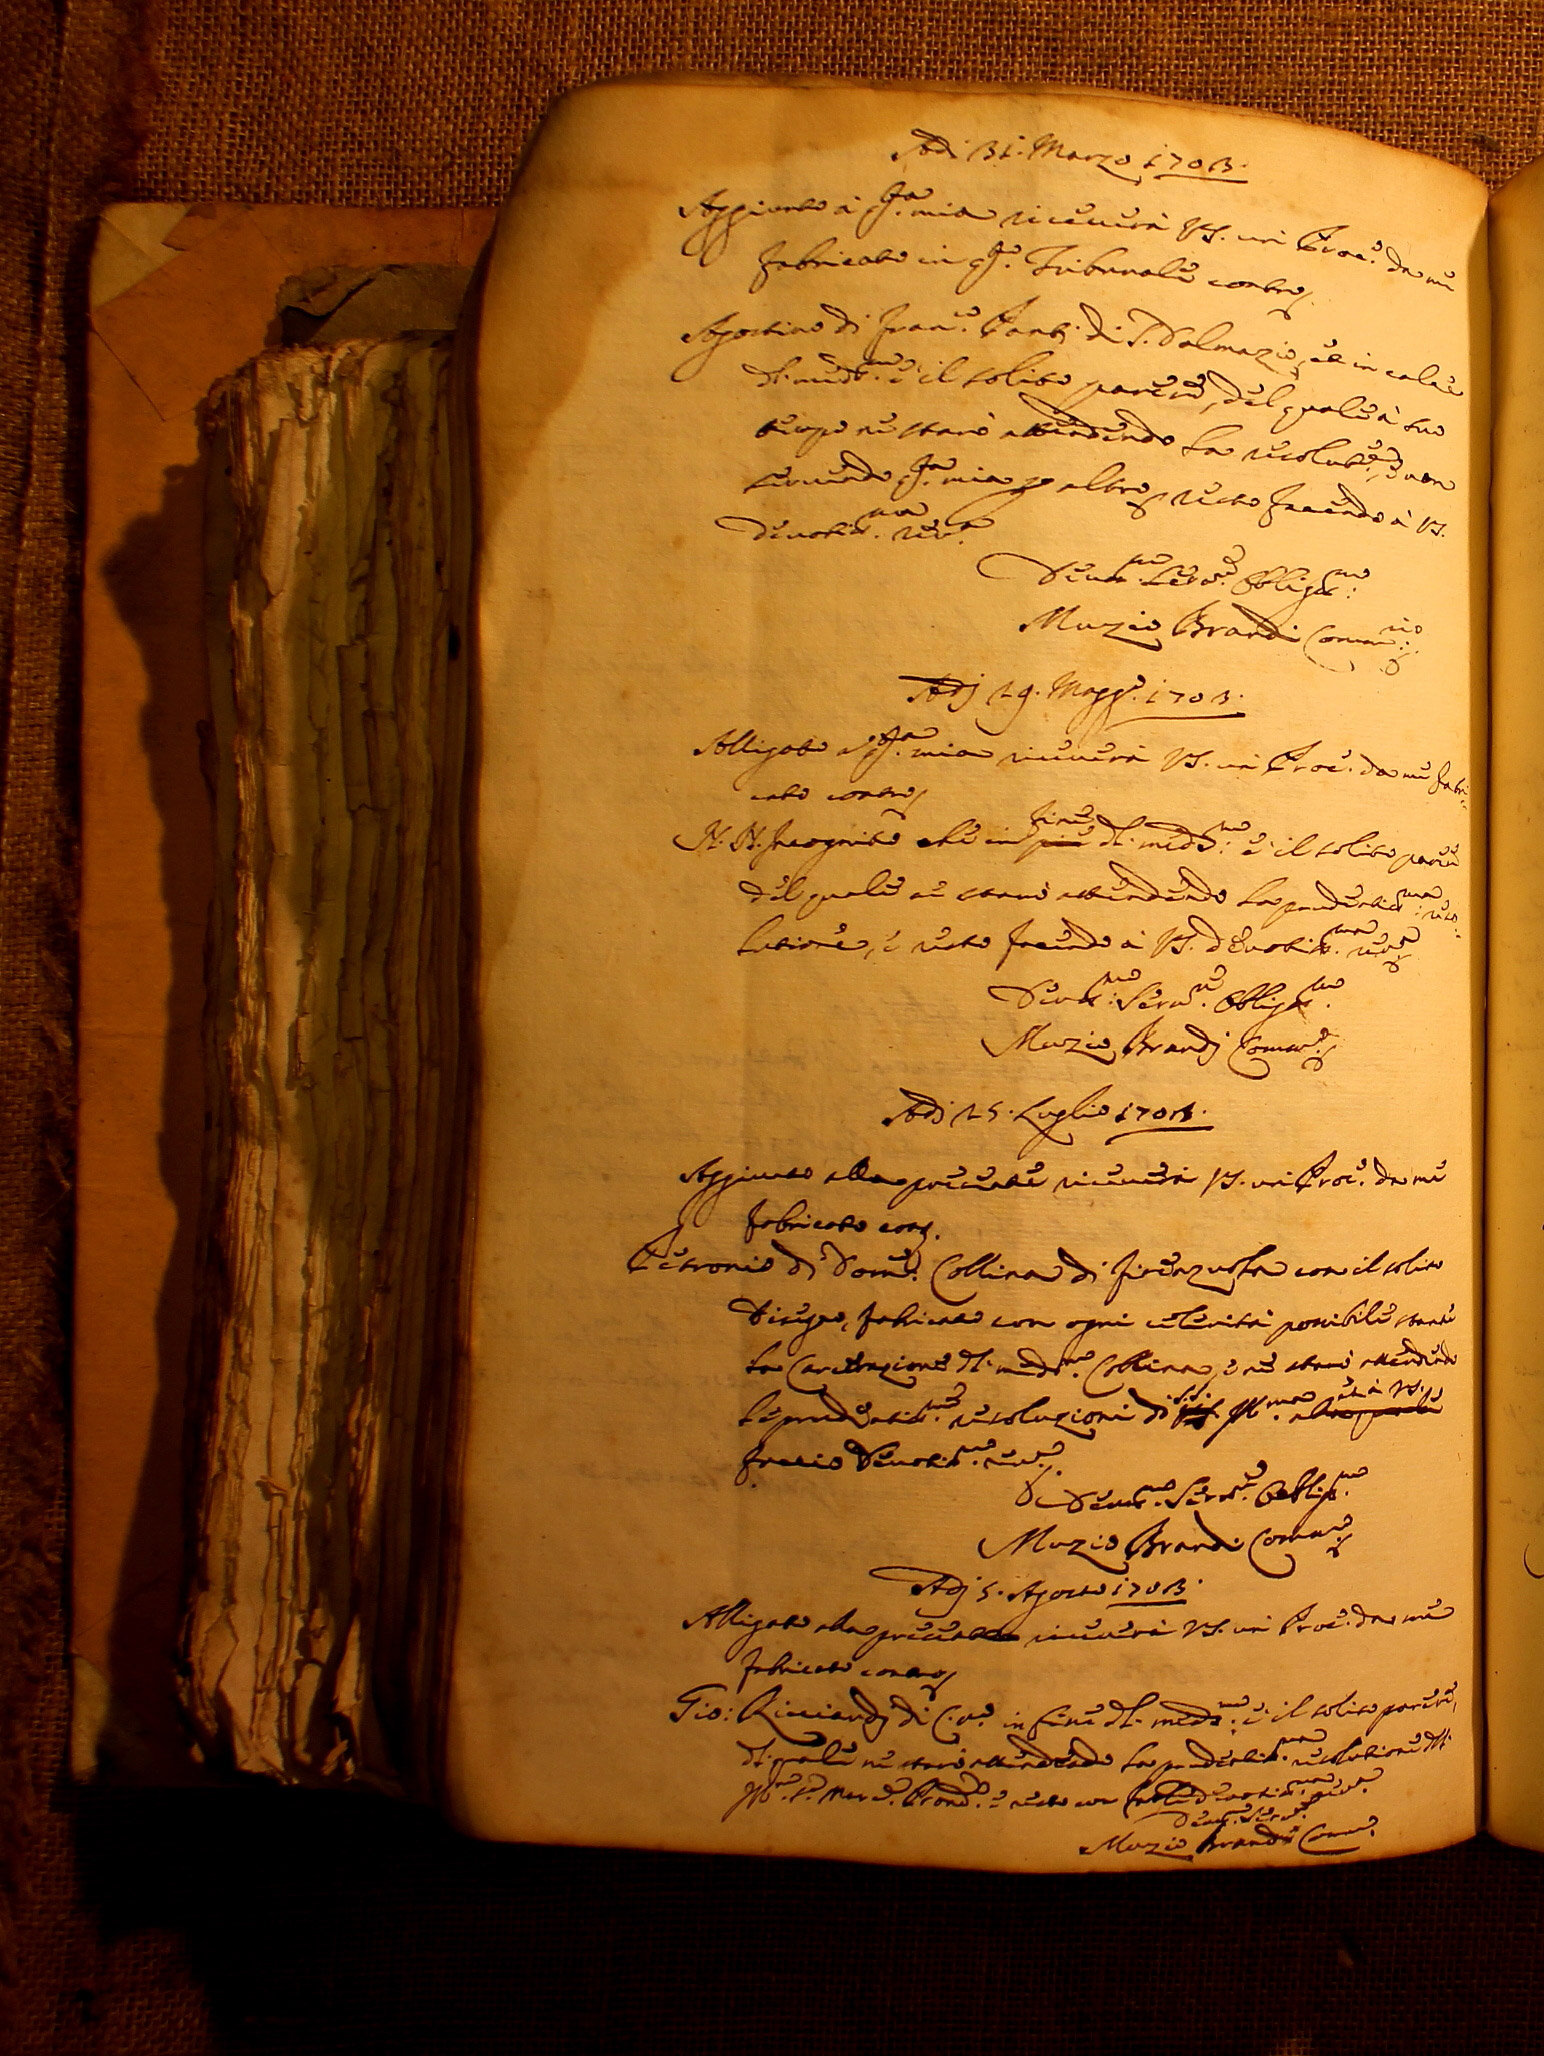 Adi 31. Marzo 1703.
Aggiunto à q.ta mia riceverà VS. un Proc.o da me
fabricato in q.to Tribunale contro
Agostino di Fran.o Panti di S. Dalmazio, et in calce
d. med.mo è il solito parere, del quale à suo
tempo ne starò attendendo la resolut.e, e non
servendo q.ta mia p altro, resto facendo à VS.
devotis.ma riv.a
Devot.mo Serv.e Obligat.mo
Muzio Brandi Comm.rio
Adj 29. Magg.o 1703.
Alligato a q.ta mia riceverà VS. un Proc.o da me fabri-
cato contro
N. N. Incognito che in fine d. med.mo è il solito parere
del quale ne starò attendendo la prudentis.ma reso-
lutione, e resto facendo à VS. devotis.ma riv.a
Devot.mo Serv.re Obligat.mo
Muzio Brandj Comm.o
Adi 25. Luglio 1703.
Aggiunto alla presente riceverà VS. un Proc.o da me
fabricato con.o
Petronio di Dom.o Collina di Firenzuola con il solito
Disegno, fabricato con ogni celerità possibile stante
la Carcerazione d. med.mo Collina, e ne starò attendendo
le prudentis.me resoluzioni di S.S. Ill.ma et à VS.
faccio devotis.ma riv.a
Devot.mo Serv.re Oblig.mo
Muzio Brandi Comm.o
Adj 5. Agosto 1703.
Alligato alla presente riceverà VS. un Proc.o da me
fabricato contro
Gio: Ricciardj di in fine d. med.mo è il solito parere,
d. quale ne starò attendendo la prudentis.ma resolutione d.
Ill.mo e resto con devotis.ma riv.a
Devot.mo Serv.re
Muzio Brandi Comm.o